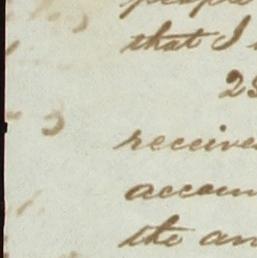 people
that I
23
receive
accoun
the an